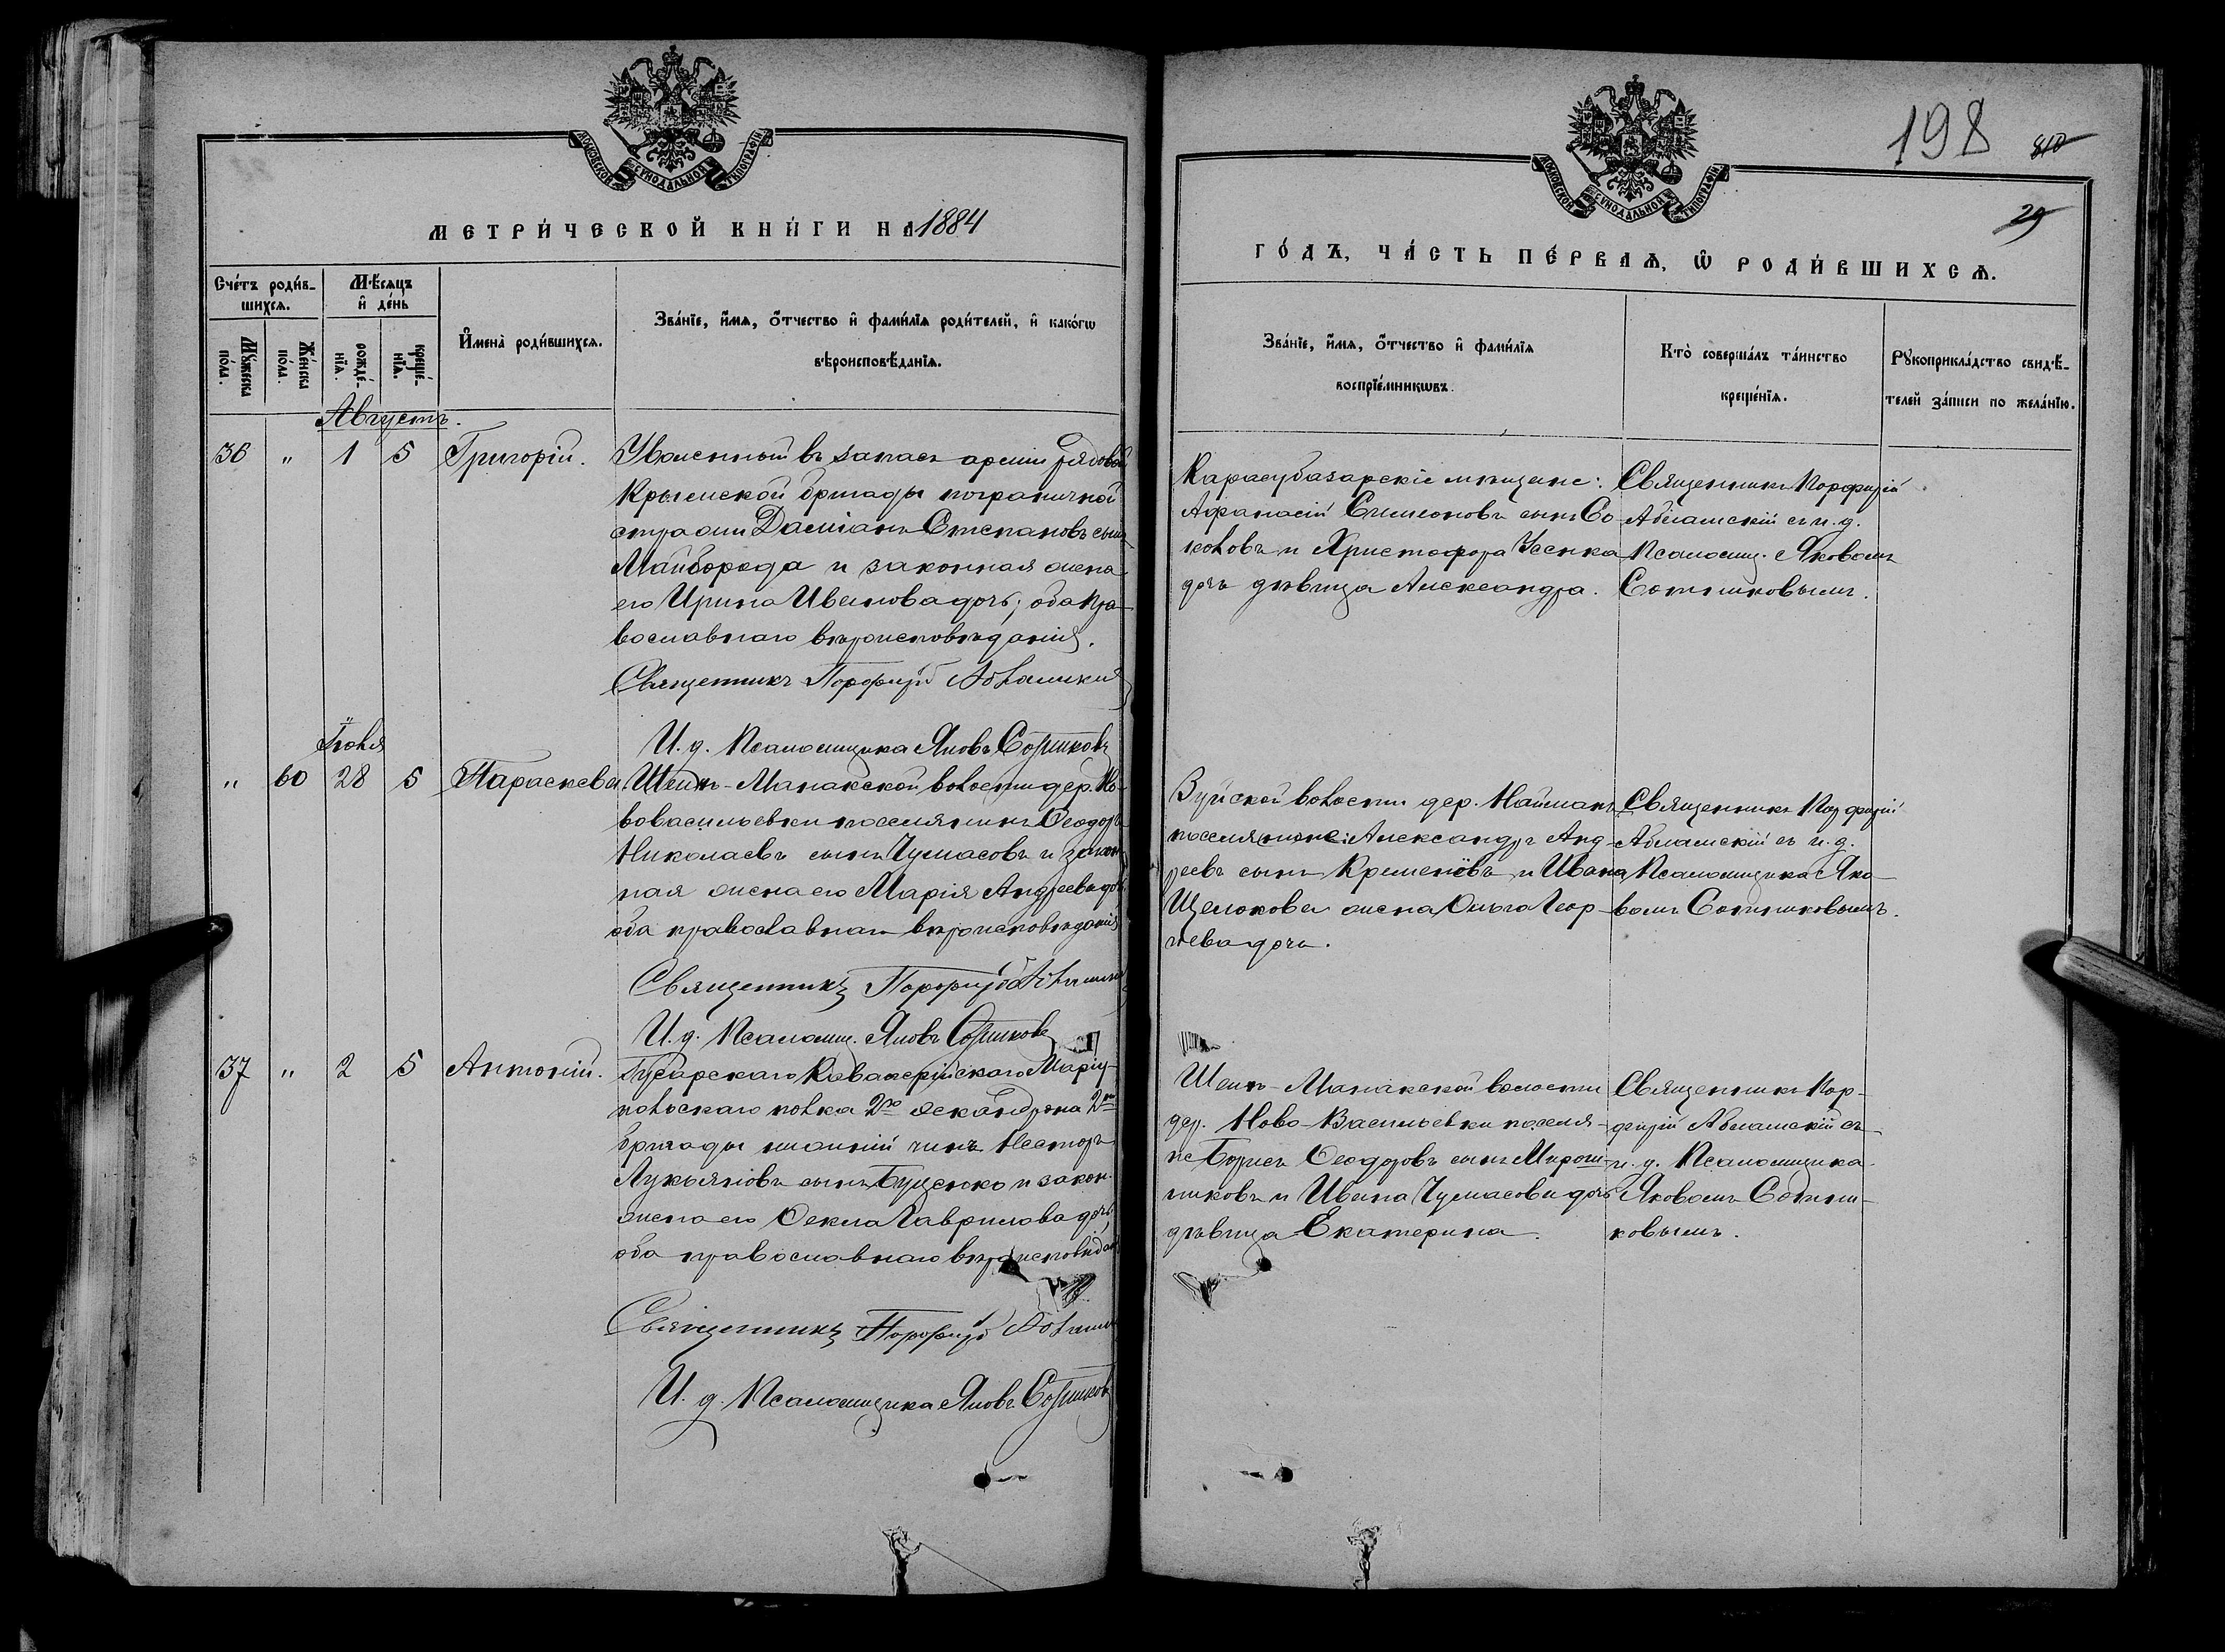 МОСКОВСКОЙ СѴНОДАЛЬНОЙ ТИПОГРАФІИ
МЕТРИ́ЧЕСКОЙ КНИ́ГИ НА 1884
Сче́тъ роди́в-
шихсѧ.
Мѣ́сѧцъ
и҆ де́нь
Мꙋ́жеска
по́ла.
Же́нска
по́ла.
рожде́-
нїѧ.
креще́-
нїѧ.
И҆мена̀ роди́вшихсѧ.
Зва́нїе, и҆́мѧ, ѻ҆́тчество и҆ фами́лїѧ роди́телей, и҆ како́гѡ
вѣроисповѣ́данїѧ.
Августъ.
36 " 1 5 Григорій. Уволенный въ запасъ арміи рядовой
Крымской бригады пограничной
стражи Даміанъ Стефановъ сынъ
Майборода и законная жена
его Ирина Иванова дочь; оба пра-
вославнаго вѣроисповѣданія.
Священникъ Порфирій
И. д. Псаломщика Яковъ Сотниковъ
Іюля
" 60 28 5 Параскева. Шеихъ-Манакской волости дер. Но-
вовасильевки поселянинъ Ѳеодоръ
Николаевъ сынъ Чумасовъ и закон-
ная жена его Марія Андреева дочь
оба православнаго вѣроисповѣданія
Священникъ Порфирій
И. д. Псаломщ. Яковъ Сотниковъ
37 " 2 5 Антоній. Гусарскаго Кавалерійскаго Маріу-
польскаго полка 2го эскадрона 2й
бригады нижній чинъ Несторъ
Лукьяновъ сынъ Буценко и закон.
жена его Ѳекла Гаврилова дочь,
оба православнаго вѣроисповѣдан
Священникъ Порфирій
И. д. Псаломщика Яковъ Сотниковъ
МОСКОВСКОЙ СѴНОДАЛЬНОЙ ТИПОГРАФІИ
198
29
ГО́ДЪ, ЧА́СТЬ ПЕ́РВАѦ, Ѡ҆ РОДИ́ВШИХСѦ.
Зва́нїе, и҆́мѧ, ѻ҆́тчество и҆ фами́лїѧ
воспрїе́мникѡвъ.
Кто̀ соверша́лъ та́инство
креще́нїѧ.
Рꙋкоприкла́дство свидѣ́-
телей за́писи по жела́нїю.
Карасубазарскіе мѣщане:
Афанасій Симеоновъ сынъ Со-
коловъ и Христофора Усенка
дочь дѣвица Александра.
Священникъ Порфирій
Абламскій съ и. д.
Псаломщ. Яковомъ
Сотниковымъ.
Зуйской волости дер. Найманъ
поселяне: Александръ Анд-
реевъ сынъ Кременёвъ и Ивана
Щелокова жена Ольга Геор-
гіева дочь.
Священникъ Порфирій
Абламскій съ и. д.
Псаломщика Яко-
вомъ Сотниковымъ.
Шеихъ-Манакской волости
дер. Ново-Васильевки поселя-
не Борисъ Ѳеодоровъ сынъ Мирош-
никовъ и Ивана Чумасова дочь
дѣвица Екатерина.
Священникъ Пор-
фирій Абламскій съ
и. д. Псаломщика
Яковомъ Сотни-
ковымъ.